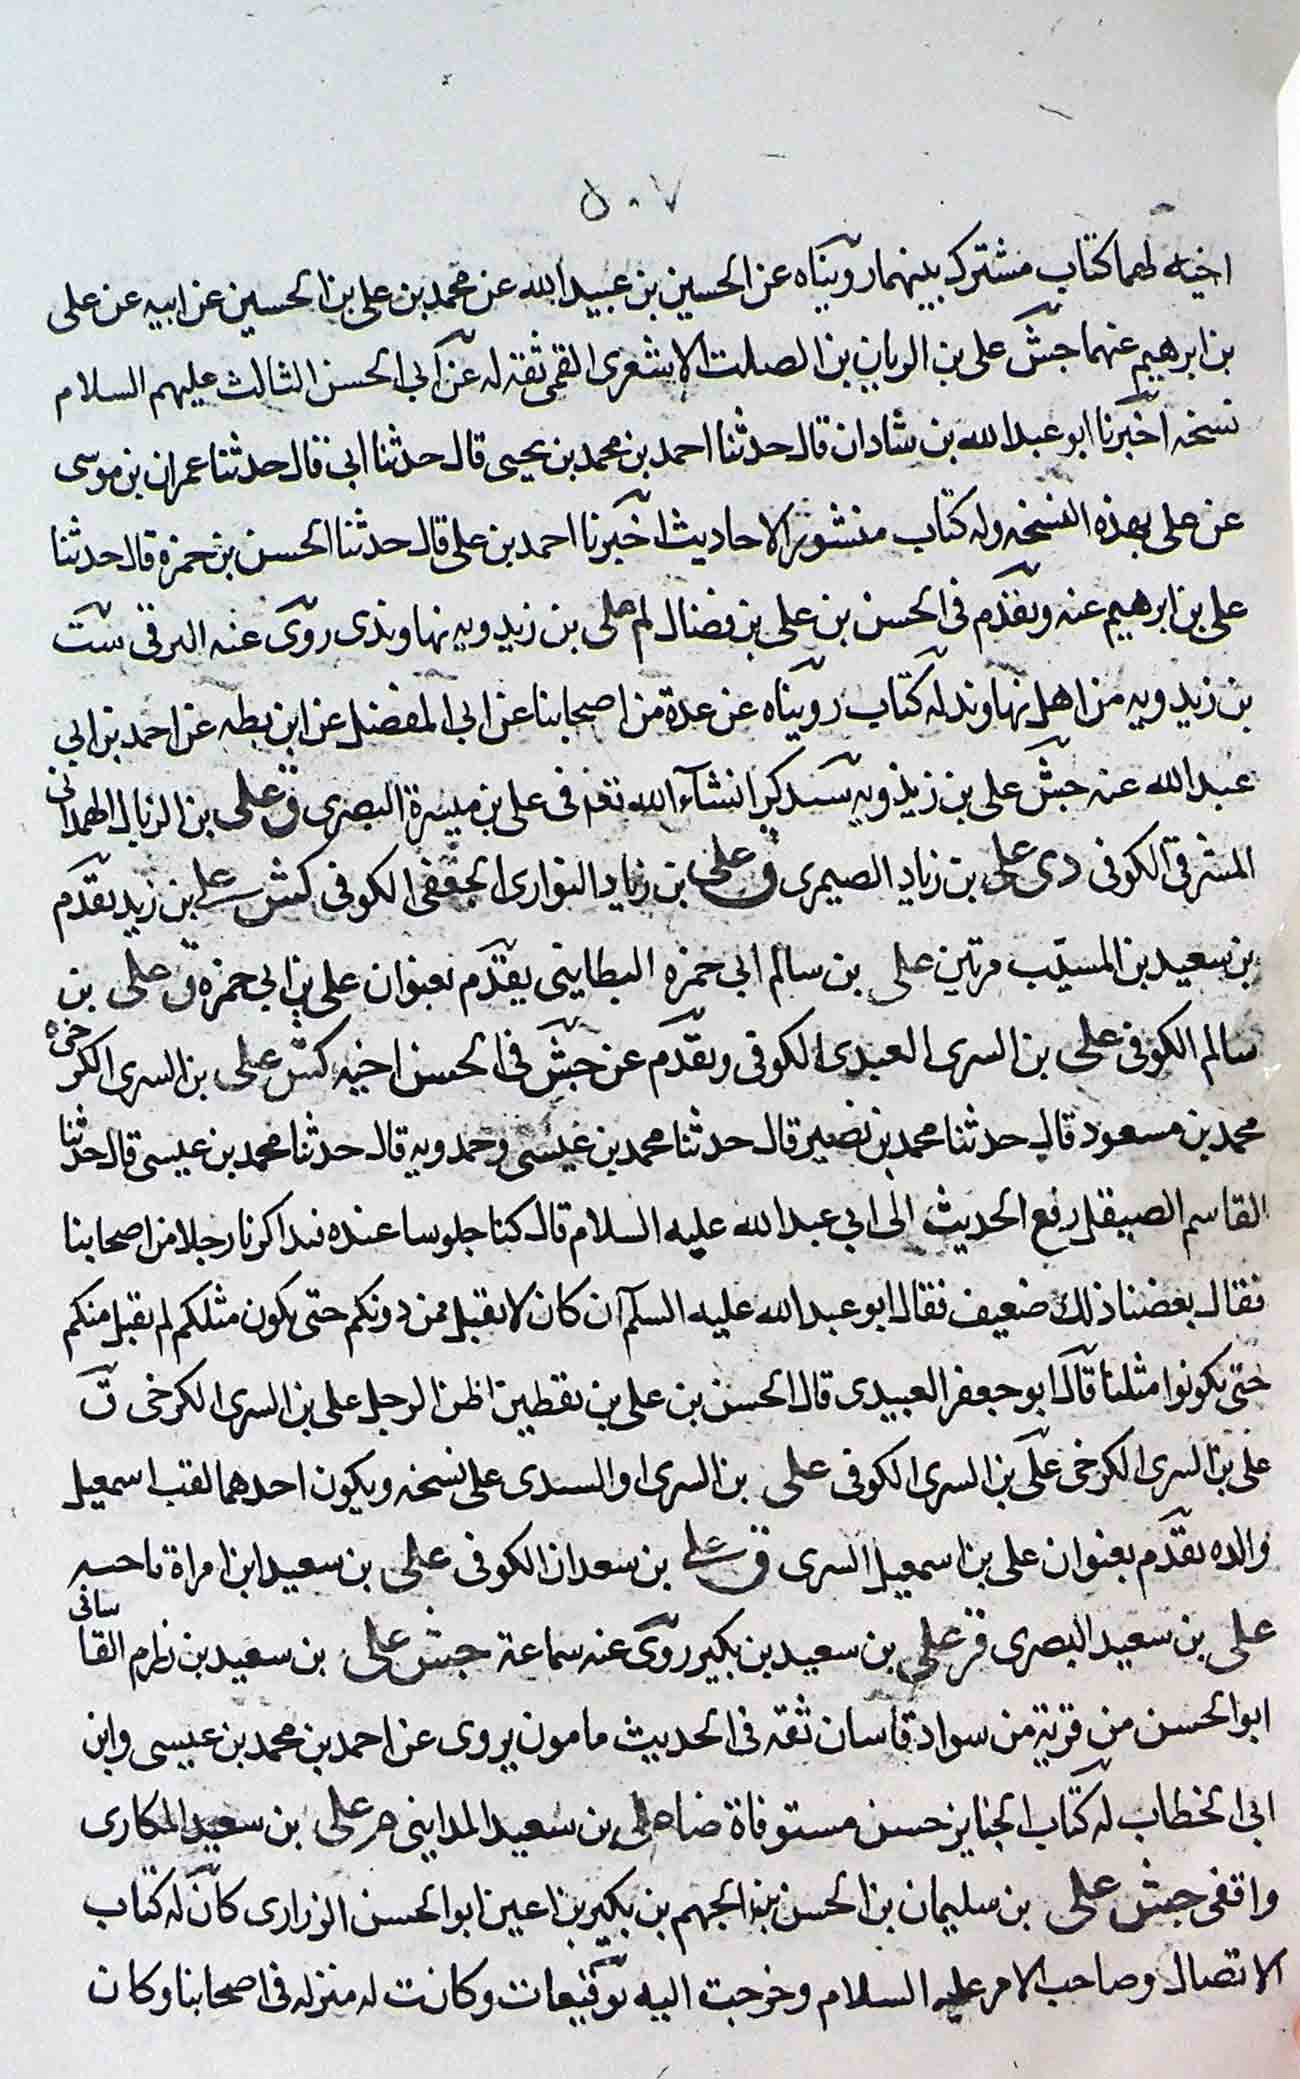 ٥٠٧
اخيه لهما كتاب مشترك بينهما رويناه عن الحسين بن عبيد الله عن محمد بن على بن الحسين عن ابيه عن على
بن ابرهيم عنهما جش على بن الريان بن الصلت الاشعرى القمى ثقة له عن ابى الحسن الثالث عليهم السلام
نسخه اخبرنا ابو عبد الله بن شاذان قال حدثنا احمد بن محمد بن يحيى قال حدثنا ابى قال حدثنا عمران بن موسى
عن على بهذه النسخه وله كتاب منثور الاحاديث اخبرنا احمد بن على قال حدثنا الحسن بن حمزه قال حدثنا
على بن ابرهيم عنه وتقدم فى الحسن بن على بن فضال لم على بن زيدويه نهاوندى روى عنه البرقى ست
بن زيدويه من اهل نهاوند له كتاب رويناه عن عدة من اصحابنا عن ابى المفضل عن ابن بطه عن احمد بن ابى
عبد الله عنه جش على بن زيدويه سيذكر انشاء الله تعالى فى على بن ميسرة البصرى ق على بن الزيال الهمدانى
المشرقى الكوفى دى على بن زياد الصيمرى ق على بن زياد النوارى الجعفى الكوفى كش على بن زيد تقدم
بن سعيد بن المسيّب مرتين على بن سالم ابى حمزه البطاينى يقدّم بعنوان على بن ابى حمزه ق على بن
سالم الكوفى على بن السرى العبدى الكوفى وتقدم عن جش فى الحسن اخيه كش على بن السرى الكرخى
محمد بن مسعود قال حدثنا محمد بن نصير قال حدثنا محمد بن عيسى وحمدويه قال حدثنا محمد بن عيسى قال حدثنا
القاسم الصيقل رفع الحديث الى ابى عبد الله عليه السلام قال كنا جلوسا عنده فتذاكرنا رجلا من اصحابنا
فقال بعضنا ذلك ضعيف فقال ابو عبد الله عليه السلام ان كان لا يقبل ممن دونكم حتى يكون مثلكم لم يقبل منكم
حتى تكونوا مثلنا قال ابو جعفر العبيدى قال الحسن بن على بن يقطين اظن الرجل على بن السرى الكرخى ق
على بن السرى الكرخى على بن السرى الكوفى على بن السرى او السندى على نسخه ويكون احدهما لقب اسمعيل
والده تقدّم بعنوان على بن اسمعيل السرى ق على بن سعدان الكوفى على بن سعيد ابن امراة ناحيه
على بن سعيد البصرى قر على بن سعيد بن بكير روى عنه سماعة جش على بن سعيد بن رزام القاسانى
ابو الحسن من قرية من سواد قاسان ثقه فى الحديث مامون يروى عن احمد بن محمد بن عيسى وابن
ابى الخطاب له كتاب الجنايز حسن مستوفاة ضا على بن سعيد المداينى م على بن سعيد المكارى
واقفى جش على بن سليمان بن الحسن بن الجهم بن بكير بن اعين ابو الحسن الزرارى كان له كتاب
الاتصال وصاحب الامر عليه السلام وخرجت اليه توقيعات وكانت له منزله فى اصحابنا وكان